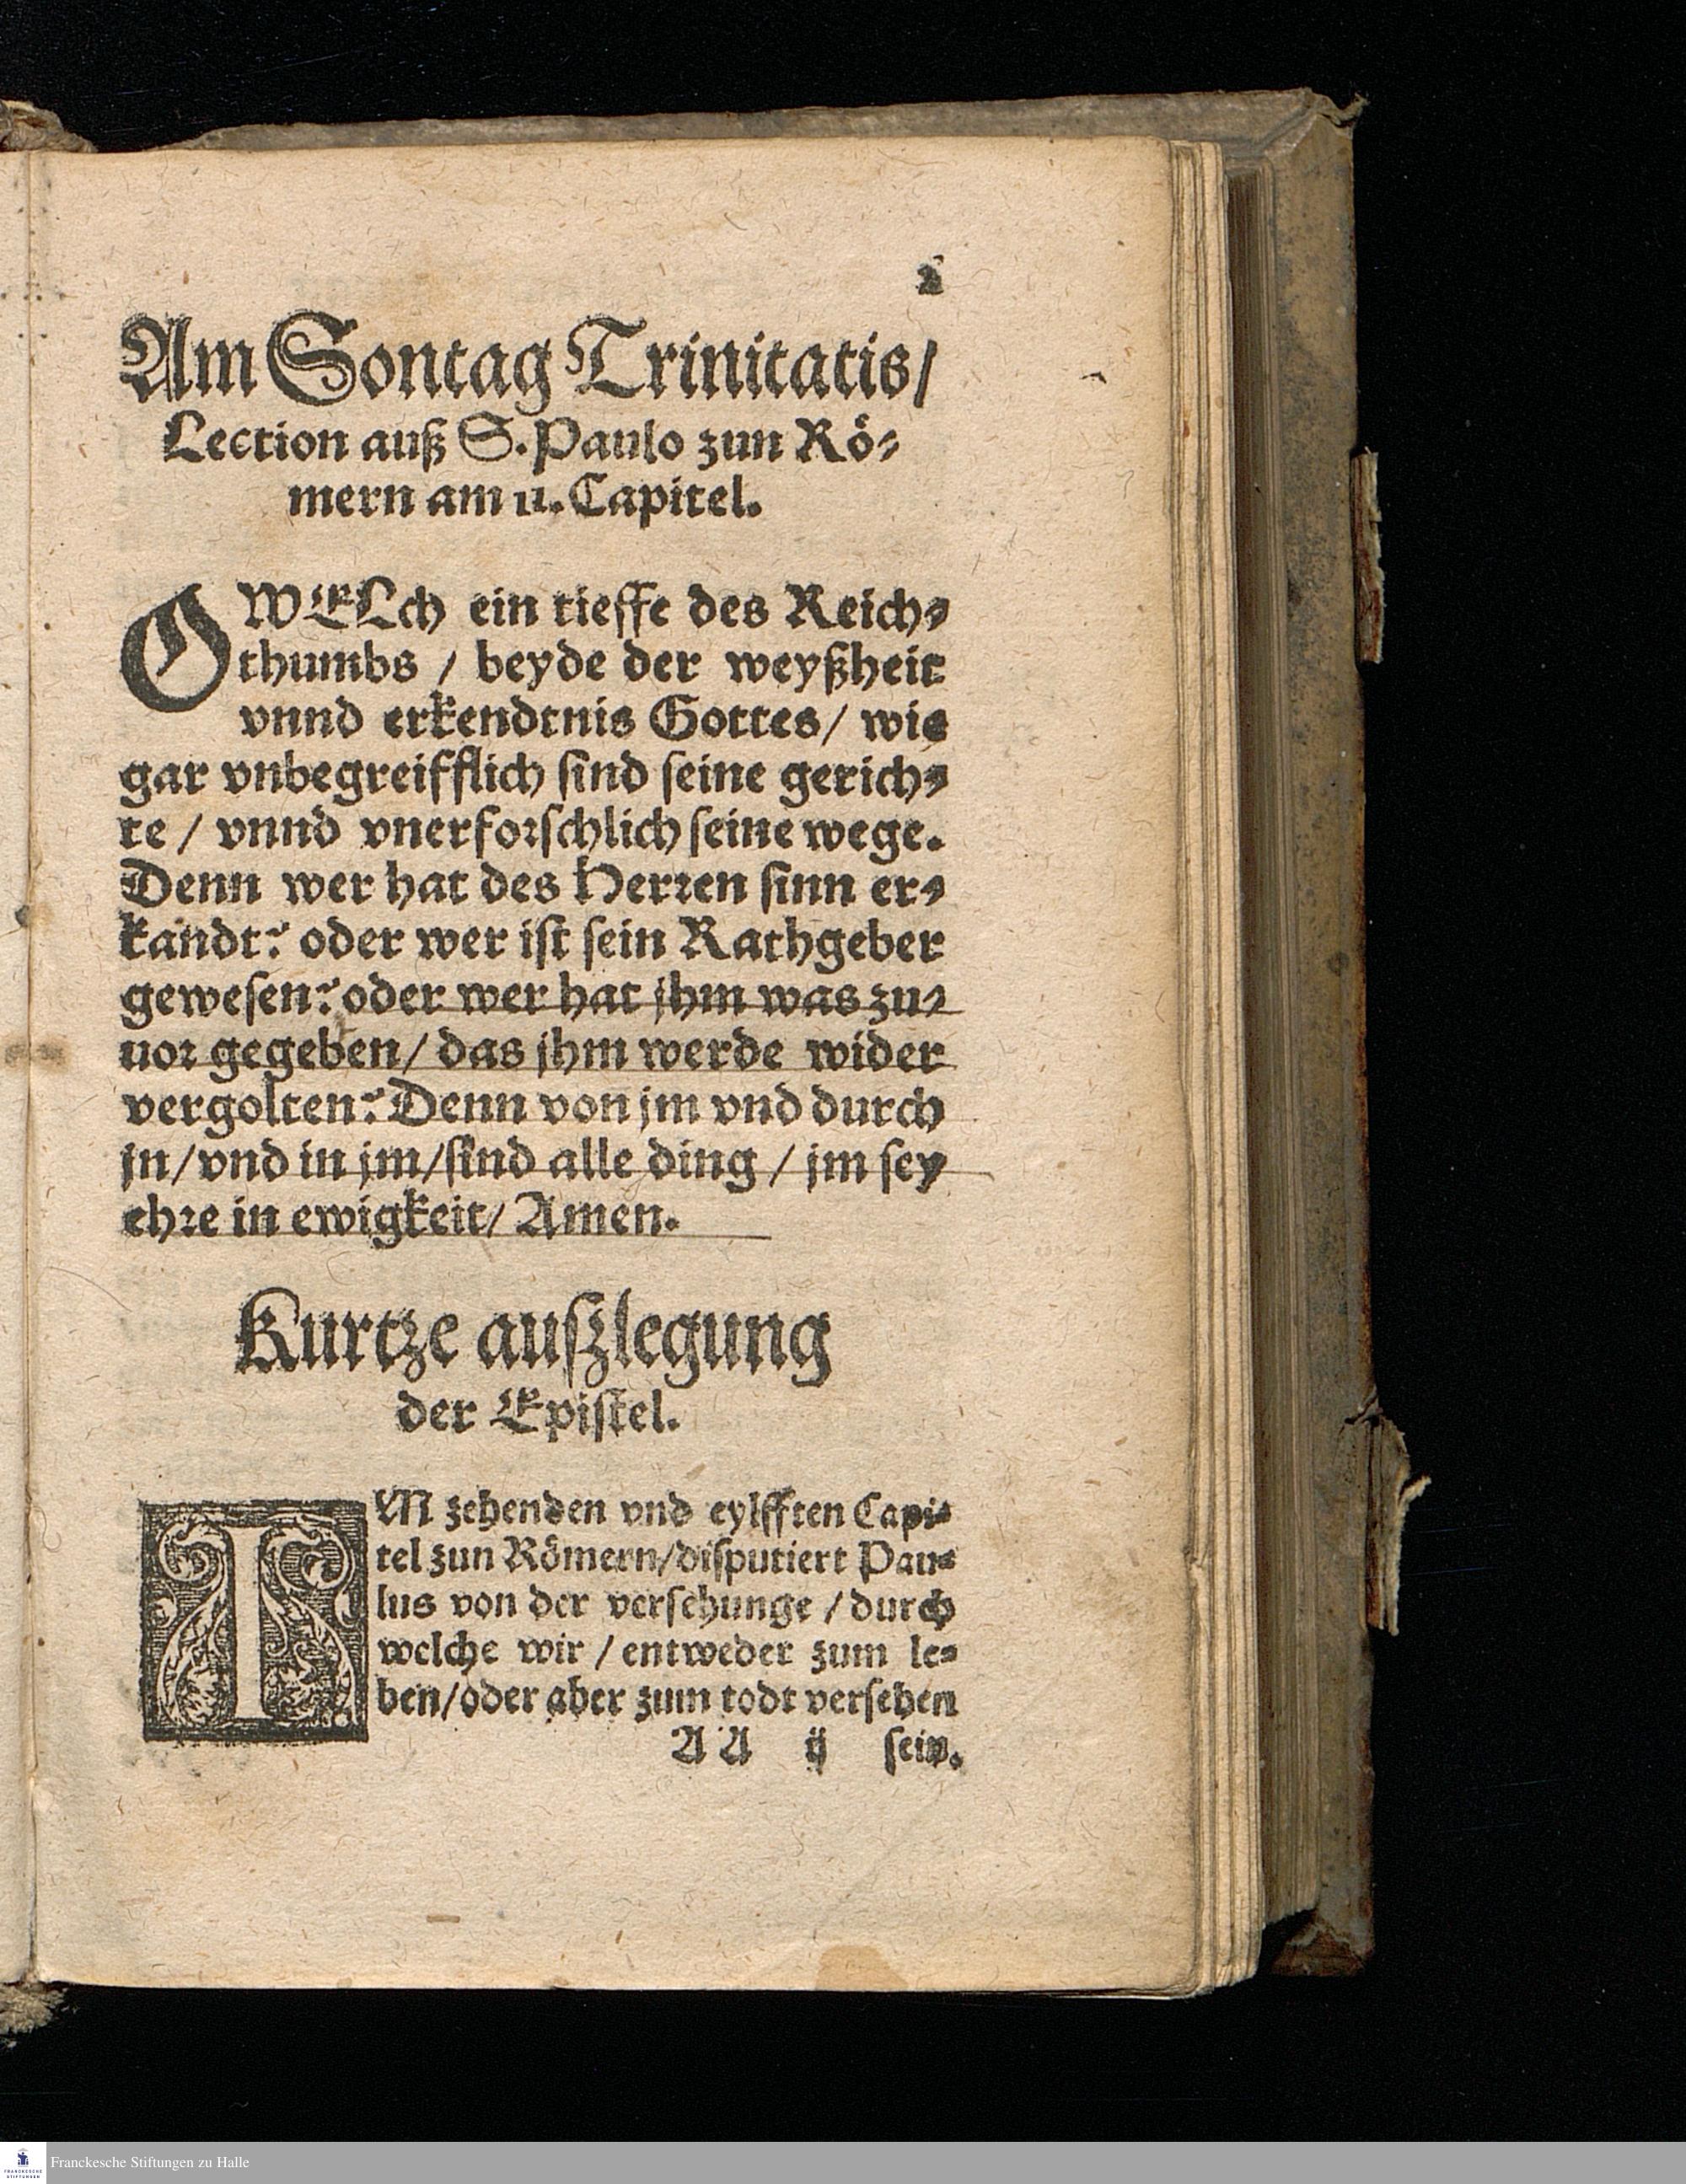 2
Am Sontag Trinitatis/
Lection auß S. Paulo zun Rö⸗
mern am 11. Capitel.
O WELch ein tieffe des Reich⸗
thumbs / beyde der weyßheit
vnnd erkendtnis Gottes/ wie
gar vnbegreifflich sind seine gerich⸗
te / vnnd vnerforschlich seine wege.
Denn wer hat des Herren sinn er⸗
kandt? oder wer ist sein Rathgeber
gewesen? oder wer hat jhm was zu⸗
uor gegeben/ das jhm werde wider
vergolten? Denn von jm vnd durch
jn/vnd in jm/sind alle ding / jm sey
ehre in ewigkeit/ Amen.
Kurtze auszlegung
der Epistel.
IM zehenden vnd eylfften Capi⸗
tel zun Römern/disputiert Pau⸗
lus von der versehunge / durch
welche wir / entweder zum le⸗
ben/oder aber zum todt versehen
AA ij sein.
Franckesche Stiftungen zu Halle
FRANCKESCHE
STIFTUNGEN